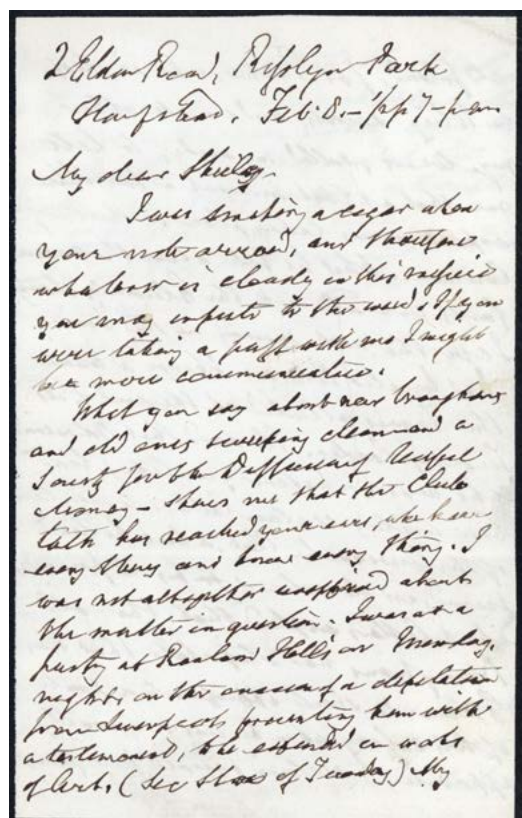 2 Eldon Road, Rosslyn Park
Hampstead, Feb. 8. - 1/2 p 7 - p.m.
My dear Shirley,
I was smoking a cigar when
your note arrived, and therefore
whatever is cloudy in this
you may impute to the weed. If you
were taking a puff with me I might
be more communicative.
What you say about new brooms
and old ones sweeping clean and a
Society for the Diffusion of Useful
Money - shows me that the Club
talk has reached your ears, who hear
every thing and know every thing. I
was not altogether about
the matter in question - I was at a
party at Rowland Hill's on Monday
night on the occasion of a deputation
from Liverpool presenting him with
a testimonial, to be expended in works
of Art. (See Star of Tuesday) My